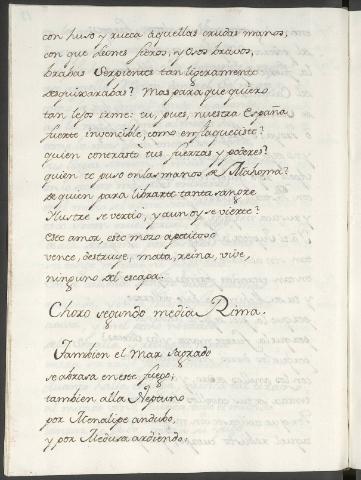 con huso y rueca aquellas crudas manos,
con que leones fieros, y Osos bravos,
brabas Serpientes tan ligeramente
desquixarabas? Mas para que quiero
tan lejos irme: tu, pues, nuestra España
fuerte invencible, como enflaqueciste?
quien contrastó tus fuerzas y poderes?
quien te puso en las manos de Mahoma?
de quien para librarte tanta sangre
Ilustre se vertio, y aun oy se vierte?
Este amor, este mozo apetitoso
vence, destruye, mata, reina, vive,
ninguno del escapa.
Choro segundo media Rima.
Tambien el Mar sagrado
se abrasa en este fuego;
tambien alla Neptuno
por Menalipe andubo,
y por Medusa ardiendo.